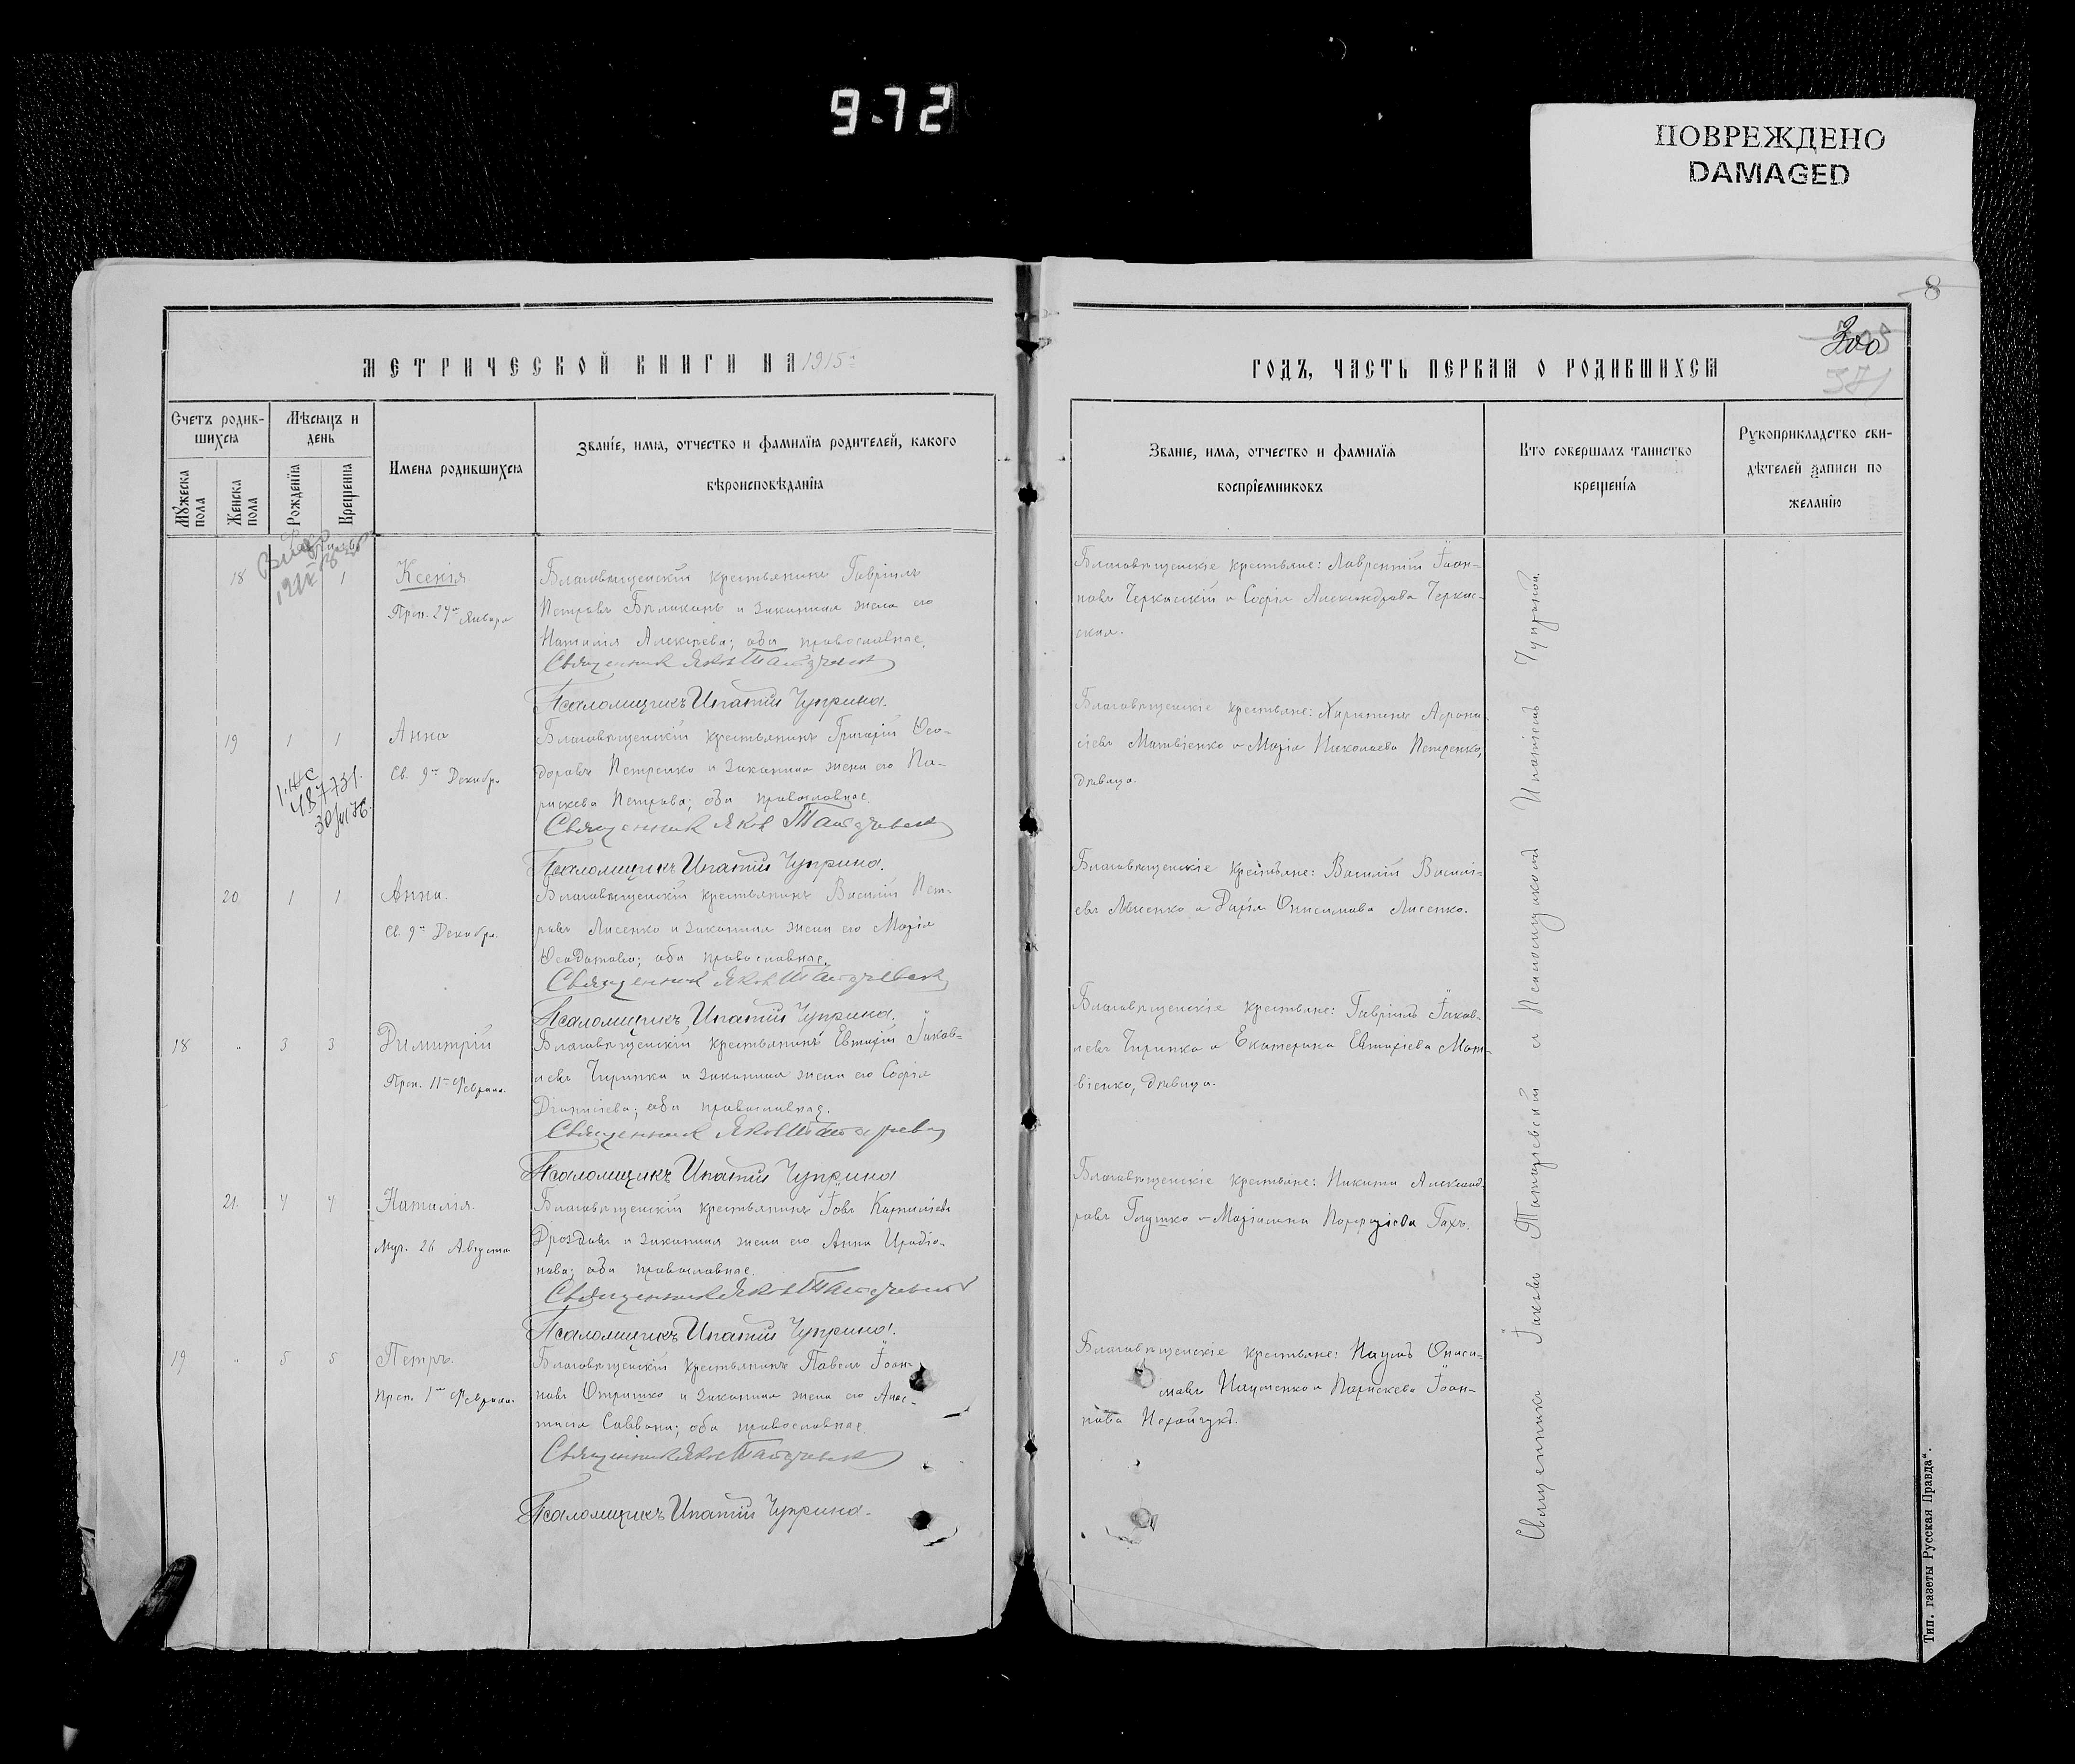 9.72
ПОВРЕЖДЕНО
DAMAGED
8
300
381
МЕТРИЧЕСКОЙ КНИГИ НА 1915 г.
ГОДЪ, ЧАСТЬ ПЕРВАЯ О РОДИВШИХСЯ
Счетъ родив-
шихся
Мужеска пола
Женска пола
Мѣсяцъ и день
Рожденія
Крещенія
Имена родившихся
Званіе, имя, отчество и фамилія родителей, какого
вѣроисповѣданія
Званіе, имя, отчество и фамилія
воспріемниковъ
Кто совершалъ таинство
крещенія
Рукоприкладство сви-
дѣтелей записи по
желанію
18
1
Ксенія
Преп. 24го Января
Благовѣщенскій крестьянинъ Гавріилъ
Петровъ и законная жена его
Наталія Алексѣева; оба православные.
Священникъ Яковъ
Псаломщикъ Ипатій Чуприна.
Благовѣщенскіе крестьяне: Лаврентій Іоан-
новъ Черкасскій и Софія Александрова Черкас-
ская.
19 1 1
Анна
Св. 9го Декабря
Благовѣщенскій крестьянинъ Григорій Ѳео-
доровъ Петренко и законная жена его Па-
раскева Петрова; оба православные.
Священникъ Яковъ
Псаломщикъ Ипатій Чуприна.
Благовѣщенскіе крестьяне: Харитонъ Аѳана-
сіевъ Матвіенко и Марія Николаева Петренко,
дѣвица.
487731.
20 1 1
Анна.
Св. 9го Декабря.
Благовѣщенскій крестьянинъ Василій Пет-
ровъ Лисенко и законная жена его Марія
Ѳеодотова; оба православные.
Священникъ Яковъ
Псаломщикъ Ипатій Чуприна.
Благовѣщенскіе крестьяне: Василій Василі-
евъ и Дарія Онисимова Лисенко.
18 " 3 3
Димитрій
Преп. 11го Февраля.
Благовѣщенскій крестьянинъ Евтихій Іаков-
левъ Чиринка и законная жена его Софія
Діонисіева; оба православные.
Священникъ Яковъ
Псаломщикъ Ипатій Чуприна
Благовѣщенскіе крестьяне: Гавріилъ Іаков-
левъ Чиринка и Екатерина Евтихіева Мат-
віенко, дѣвица.
21. 4 4
Наталія.
Муч. 26 Августа
Благовѣщенскій крестьянинъ Іовъ Корнилієвъ
Дроздовъ и законная жена его Анна Иродіо-
нова; оба православные.
Священникъ Яковъ
Псаломщикъ Ипатій Чуприна.
Благовѣщенскіе крестьяне: Никита Александ-
ровъ Глушко и Порфиріева
19 " 5 5
Петръ.
Преп. 1го Февраля.
Благовѣщенскій крестьянинъ Павелъ Іоан-
новъ и законная жена его Анас-
тасія Саввина; оба православные.
Священникъ Яковъ
Псаломщикъ Ипатій Чуприна.
Благовѣщенскіе крестьяне: Наумъ Ониси-
мовъ и Параскева Іоан-
нова
Священникъ Іаковъ и Псаломщикомъ Ипатіемъ Чуприной.
Тип. газеты Русская Правда".